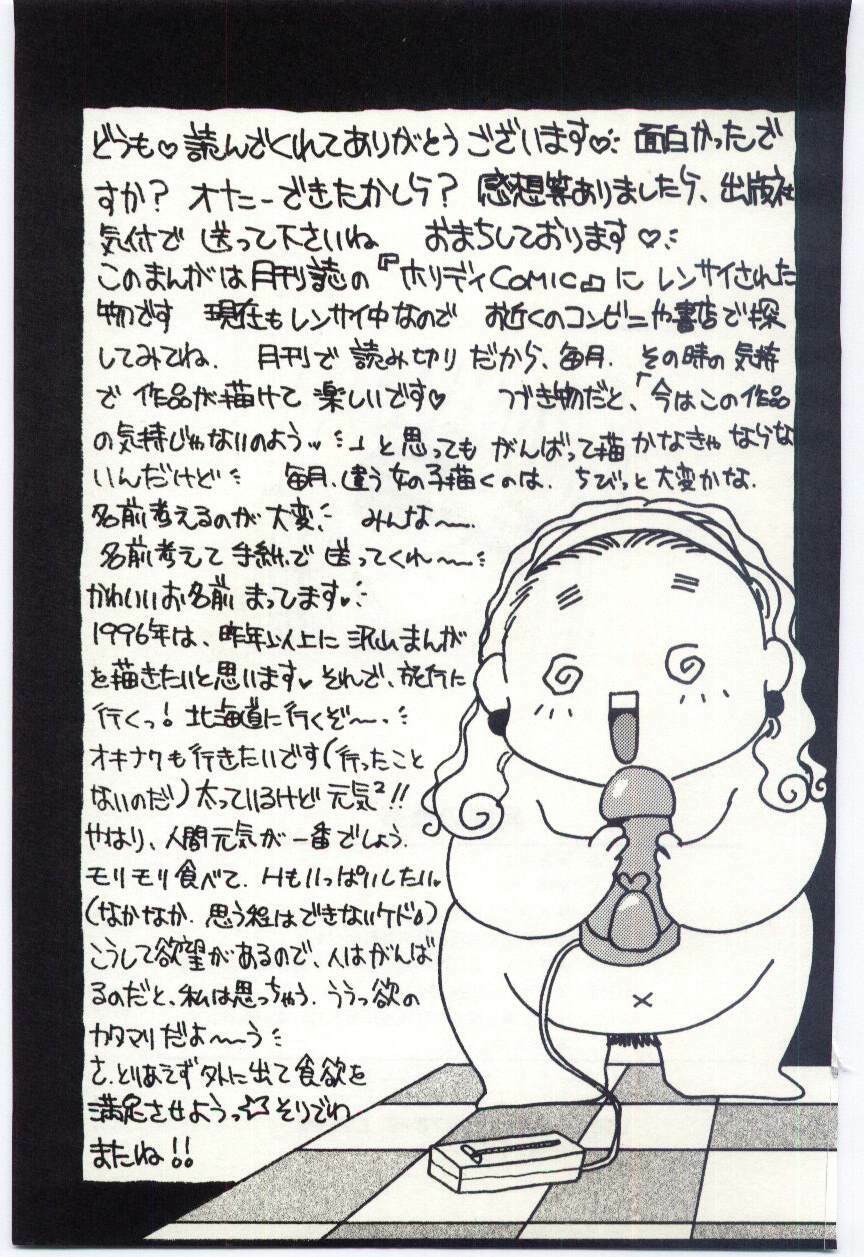 どうも♡読んでくれてありがとうございます♡ 面白かったで
すか? オナニーできたかしら? 感想等ありましたら、出版社
気付で 送って下さいね おまちしております♡
このまんがは月刊誌の『ホリディCOMIC』に レンサイされた
物です 現在もレンサイ中なので お近くのコンビニや書店で探
してみてね. 月刊で 読み切りだから、毎月. その時の気持
で 作品が描けて 楽しいです♥ つづき物だと、「今はこの作品
の気持じゃないのよう」と思っても がんばって描かなきゃ ならな
いんだけど 毎月、違う女の子描くのは. ちびっと大変かな.
名前考えるのが大変 みんな〜.
名前考えて 手紙で 送ってくれ〜
かわいいお名前 まってます♥
1996年は、昨年以上に 沢山まんが
を描きたいと思います♥ それで、旅行に
行くっ! 北海道に行くぞ〜.
オキナワも行きたいです(行ったこと
ないのだ) 太っているけど 元気²!!
やはり、人間元気が 一番でしょう.
モリモリ食べて. Hもいっぱいしたい
(なかなか. 思う程はできないケド)
こうして欲望があるので、人はがんば
るのだと、私は思っちゃう. ううっ欲の
カタマリだよ〜う
さ、とりあえず外に出て食欲を
満足させようっ☆ そりでわ
またね!!